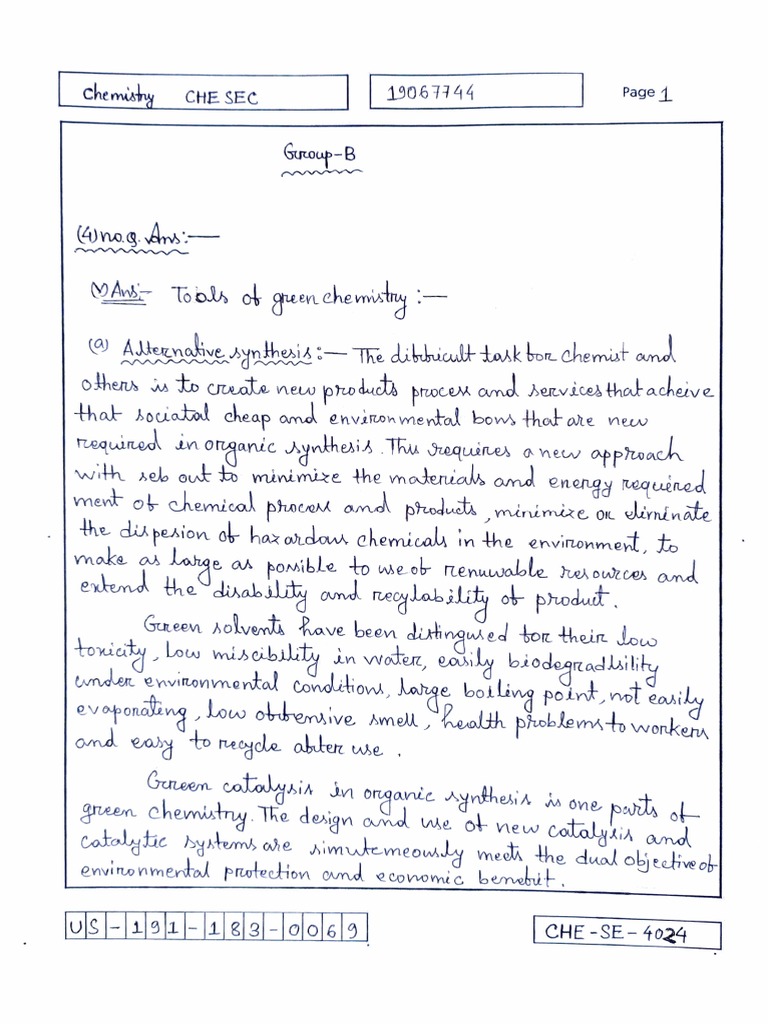 Chemistry CHE SEC
19067744
Page 1
Group-B
(4) no. Q. Ans:—
(v) Ans:- Tools of green chemistry :—
(a) Alternative synthesis :— The difficult task for chemist and
others is to create new products process and services that acheive
that sociatal cheap and environmental bows that are new
required in organic synthesis. This requires a new approach
with seb out to minimize the materials and energy required
ment of chemical process and products, minimize or eliminate
the dispesion of hazardous chemicals in the environment, to
make as large as possible to use of renuwable resources and
extend the disability and recylability of product.
Green solvents have been distingused for their low
toxicity, low miscibility in water, easily biodegradlsility
under environmental conditions, large boiling point, not easily
evaporating, low offensive smell, health problems to workers
and easy to recycle after use.
Green catalysis in organic synthesis is one parts of
green chemistry. The design and use of new catalysis and
catalytic systems are simutemeously meets the dual objective of
environmental protection and economic benefit.
US-191-183-0069
CHE-SE-4024